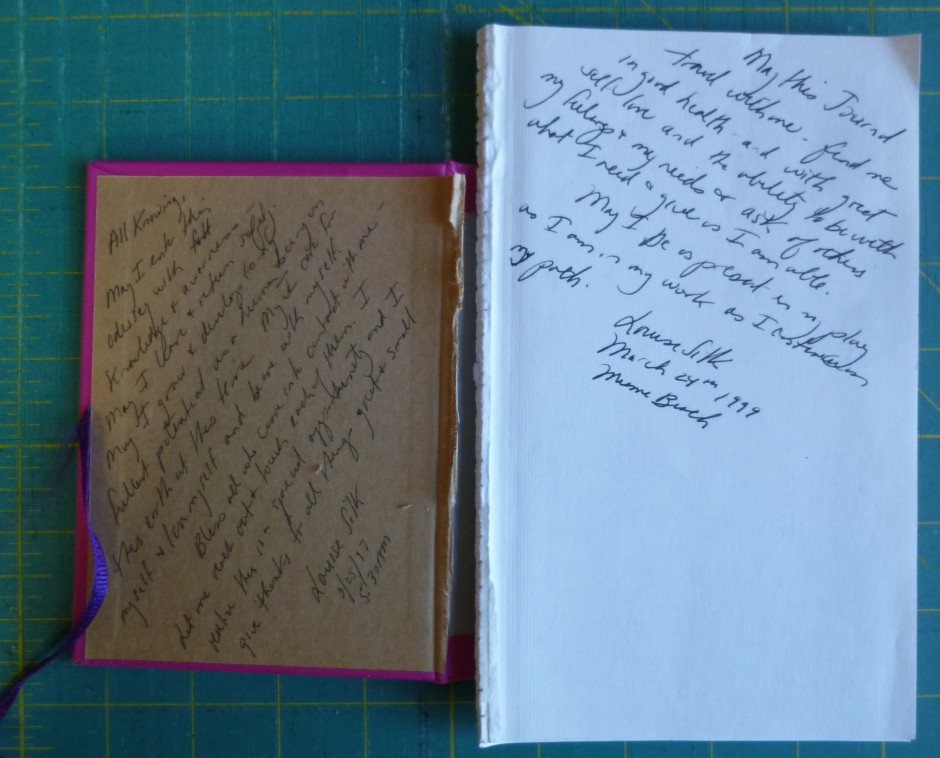 All Knowing,
May I enter this
odessey with full
Knowledge & awareness
May I leave & return safely.
May I grow & develop to my
fullest potential as a human being on
this earth at this time. May I care for
myself & love myself and be me with myself -
Bless all who come into contact with me -
Let me reach out & touch each of them. I
realize this is a special opportunity and I
give thanks for all things great & small
Louise Silk
5:30am
May this Journal
travel with me - find me
in good health - and with great
self love and the ability to be with
my feelings & my needs & ask of others
what I need & give as I am able.
May I be as present in my play
as I am in my work as I continue on
my path.
Louise Silk
March 24th 1999
Miami Beach